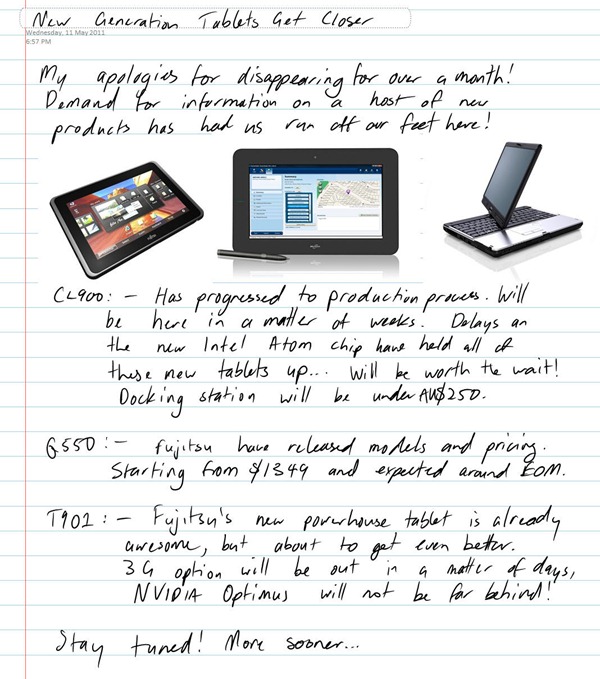 New Generation Tablets Get Closer
Wednesday, 11 May 2011
6:57 PM
My apologies for disappearing for over a month!
Demand for information on a host of new
products has had us run off our feet here!
CL900: - Has progressed to production process. Will
be here in a matter of weeks. Delays on
the new Intel Atom chip have held all of
these new tablets up... Will be worth the wait!
Docking station will be under AU$250.
Q550:- Fujitsu have released models and pricing.
Starting from $1349 and expected around EOM.
T901: - Fujitsu's new powerhouse tablet is already
awesome, but about to get even better.
3G option will be out in a matter of days,
NVIDIA Optimus will not be far behind!
Stay tuned! More sooner...